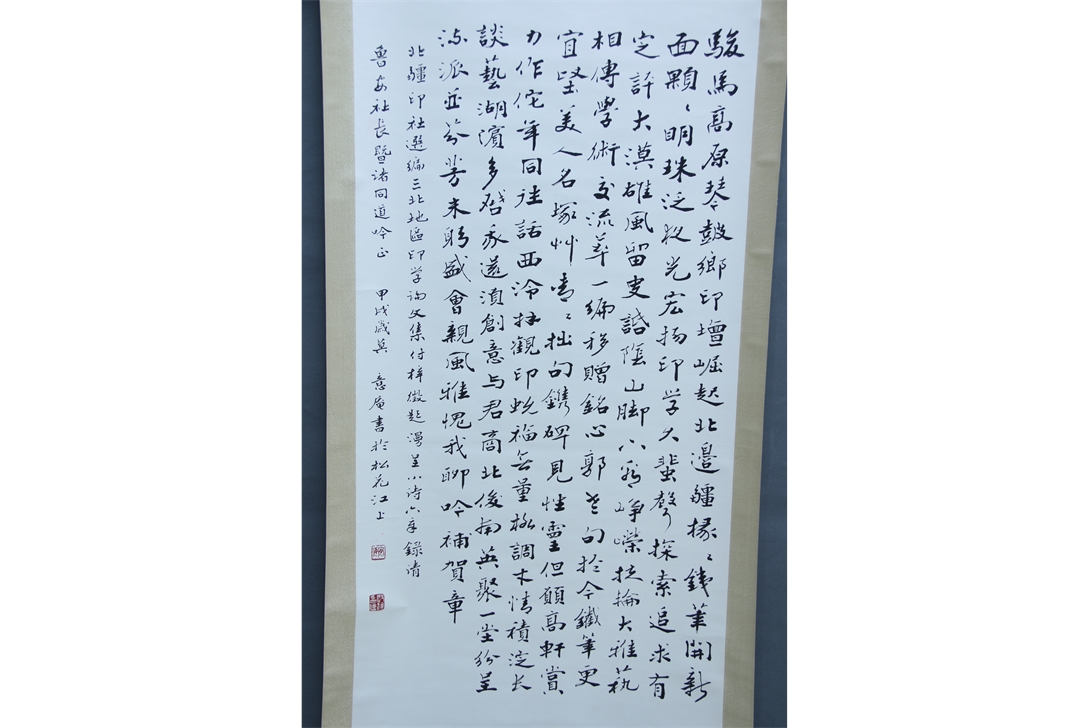 駿馬高原琴鼓鄉印壇崛起北邊疆椽〻鐵筆開新
面顆〻明珠泛彩光宏揚印学久蜚聲探索追求有
定評大漠雄風留史話陰山腳下看崢嶸扶輪大雅執
相傳學術交流萃一編移贈銘心郭老句於今鐵筆更
宜堅美人名塚艸青〻拙句鐫碑見性靈但願高軒賞
力作佗年同往話西泠拜觀印蛻福無量格調才情積淀长
談藝湖濱多啓我還須創意与君商北俊南英聚一堂紛呈
流派並芬芳未躬盛會親風雅愧我聊吟補賀章
北疆印社選編三北地區印学論文集付梓徵題漫呈小诗六章錄请
魯安社长暨诸同道吟正 甲戌歲莫 意庵書於松花江上